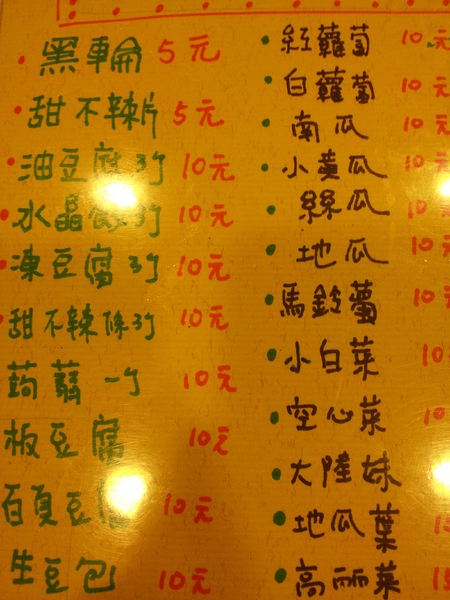 黑輪 5元
甜不辣片 5元
油豆腐3ㄎ 10元
水晶餃3ㄎ 10元
凍豆腐3ㄎ 10元
甜不辣條3ㄎ 10元
蒟蒻一ㄎ 10元
板豆腐 10元
百頁豆腐 10元
生豆包 10元
紅蘿蔔 10元
白蘿蔔 10元
南瓜 10元
小黃瓜 10元
絲瓜 10
地瓜 10元
馬鈴薯 10元
小白菜 10
空心菜 10
大陸妹
地瓜葉
高麗菜